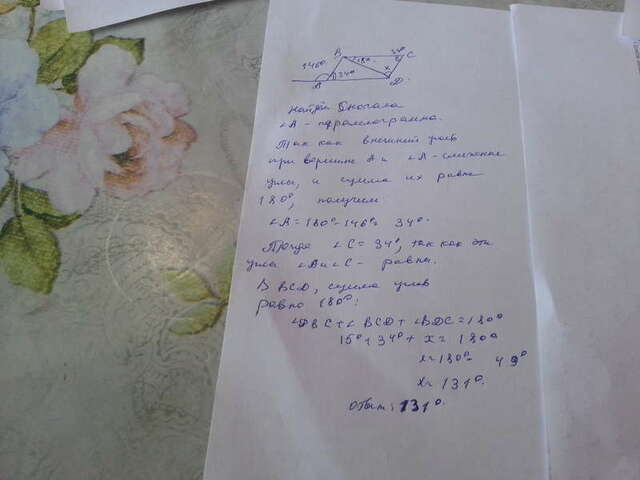 B 34° C
146° 15° x
34°
A D
Найти Сначала
∠A - параллелограмма.
Так как внешний угол
при вершине A и ∠A - смежные
углы, и сумма их равна
180°, получим
∠A = 180° - 146° = 34°.
Тогда ∠C = 34°, так как эти
углы ∠A и ∠C - равны.
В BCD, сумма углов
равно 180°:
∠DBC + ∠BCD + ∠BDC = 180°
15° + 34° + x = 180°
x = 180° - 49°
x = 131°.
Ответ: 131°.